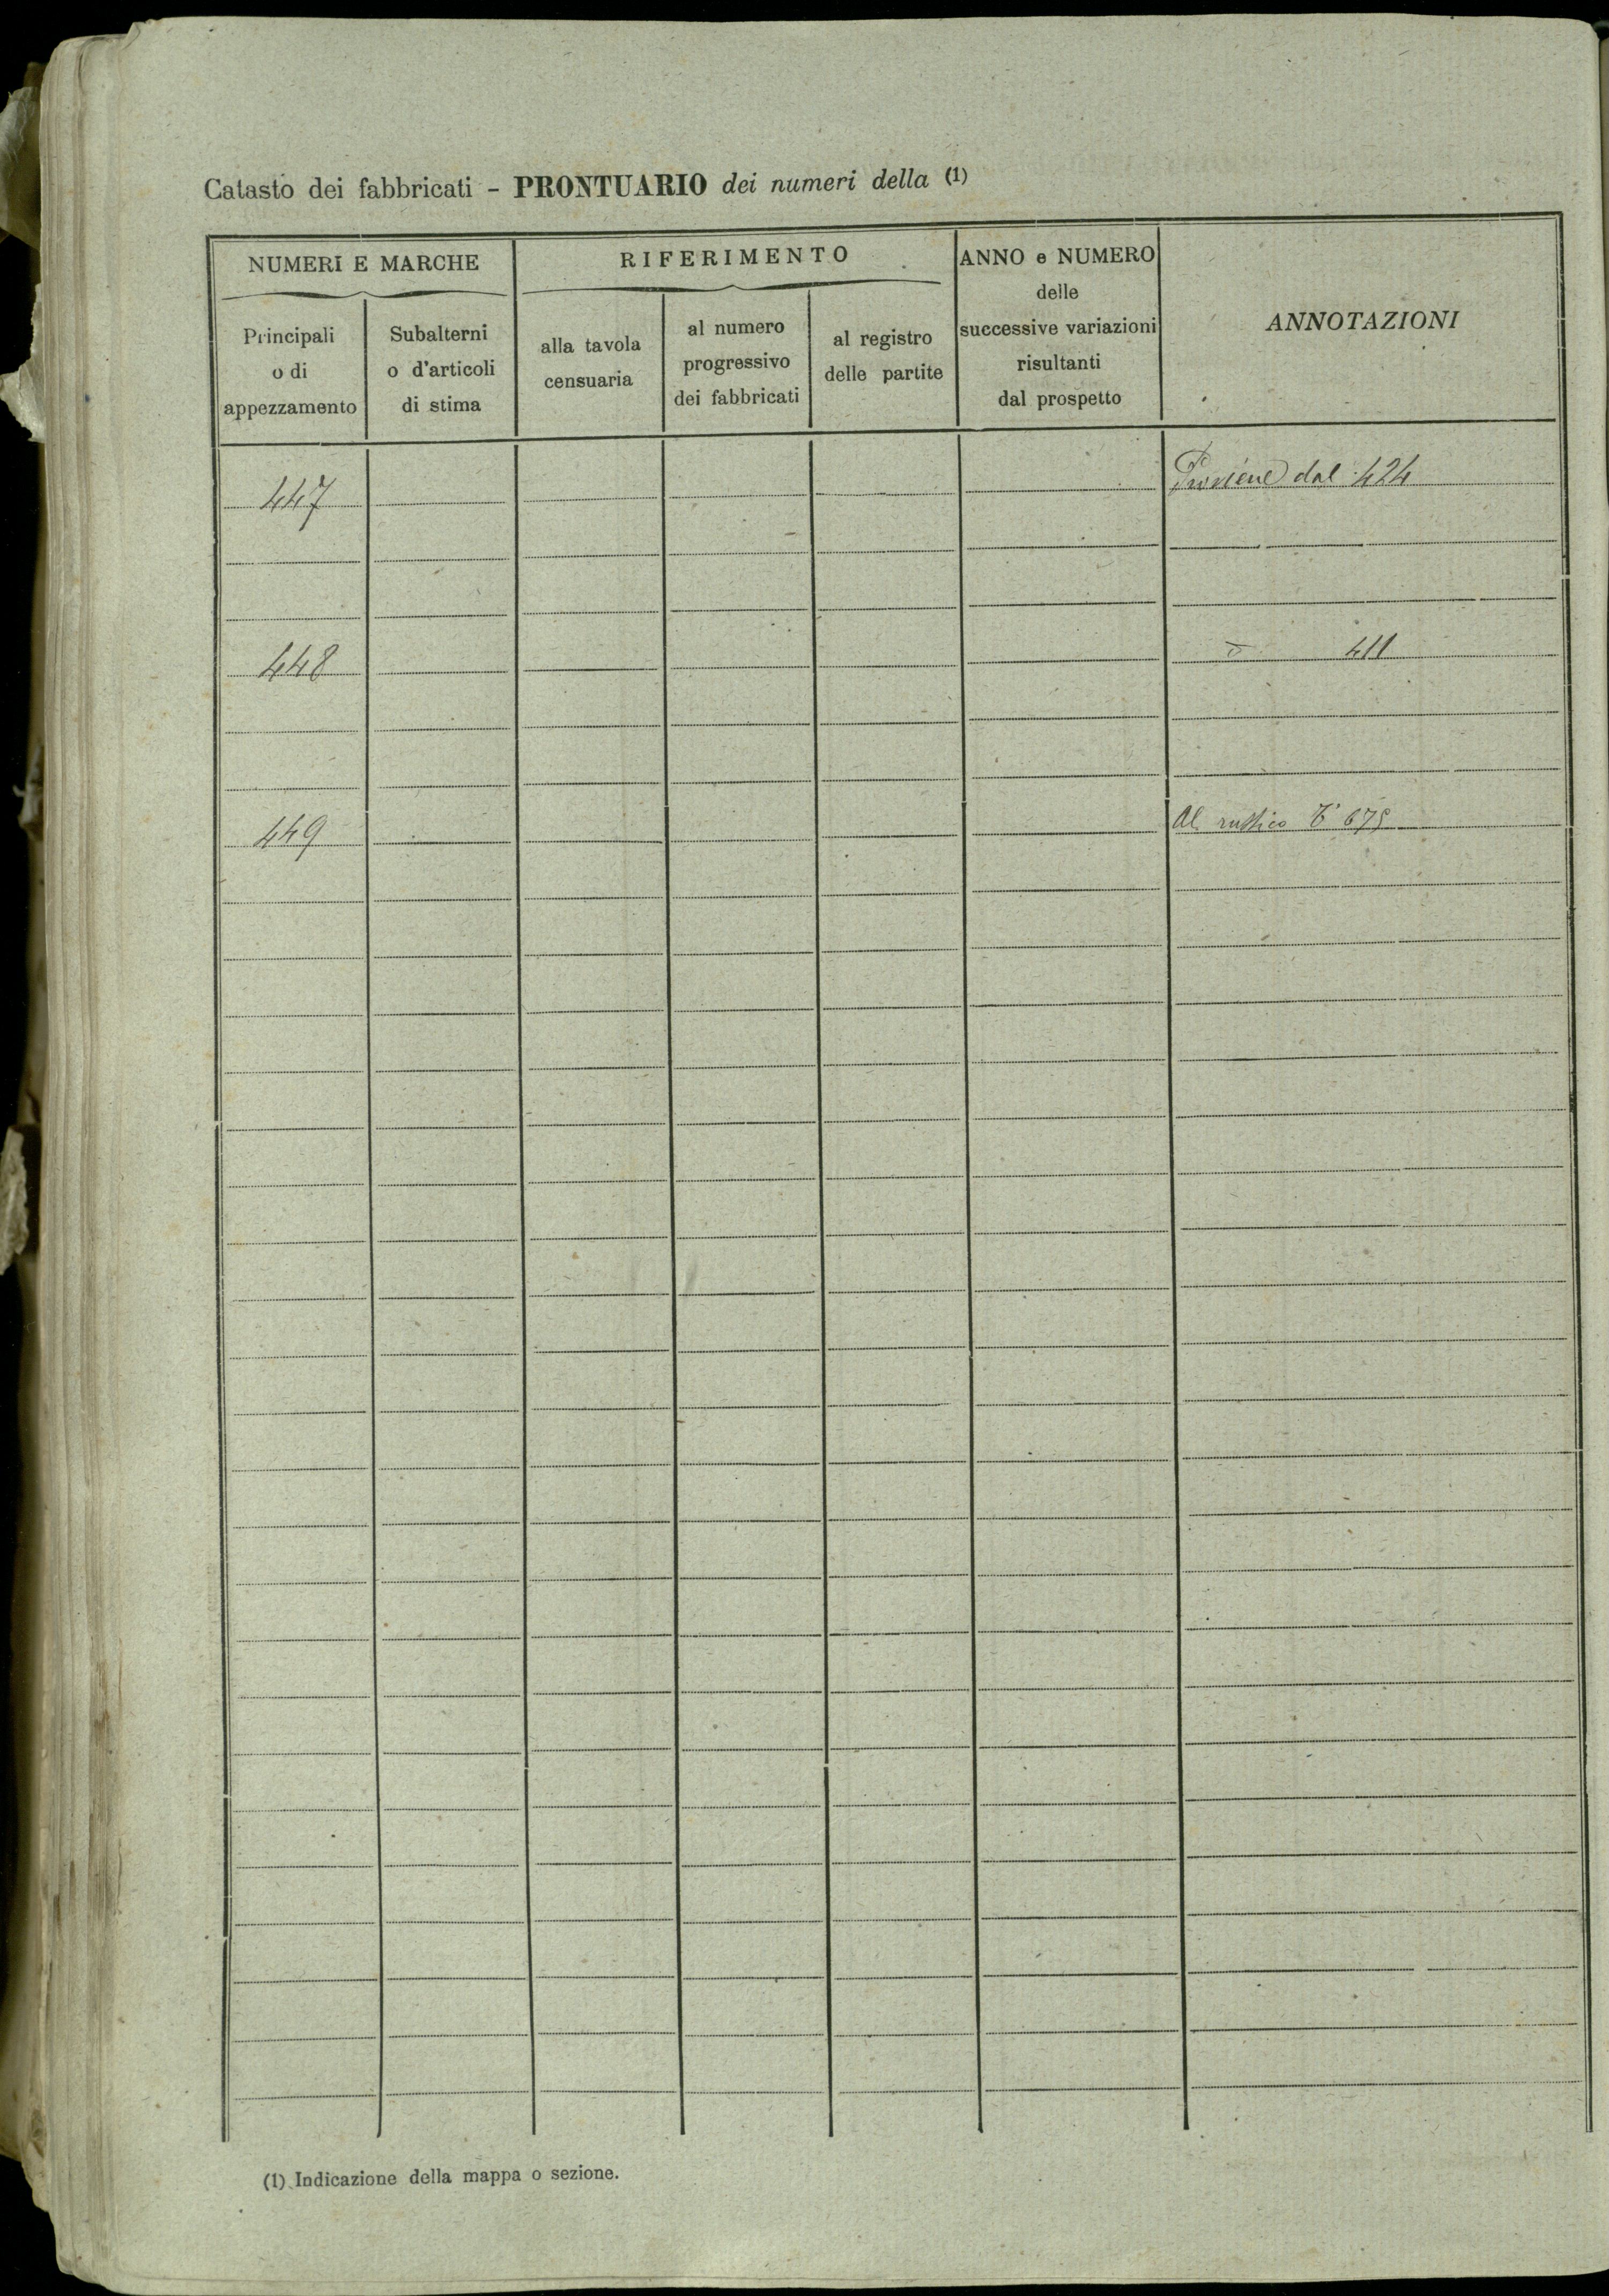 Catasto dei fabbricati – PRONTUARIO dei numeri della (1)
NUMERI E MARCHE
Principali
o di
appezzamento
Subalterni
o d'articoli
di stima
RIFERIMENTO
alla tavola
censuaria
al numero
progressivo
dei fabbricati
al registro
delle partite
ANNO e NUMERO
delle
successive variazioni
risultanti
dal prospetto
ANNOTAZIONI
447 Proviene dal 424
448 411
449 Al rustico
(1) Indicazione della mappa o sezione.